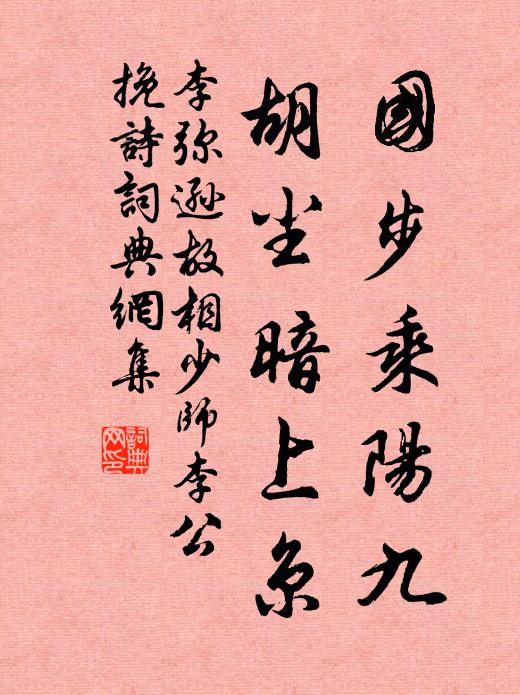 國步乘陽九
胡尘暗上京
李弥遜故相少師李公
挽詩詞典網集
詞典网印